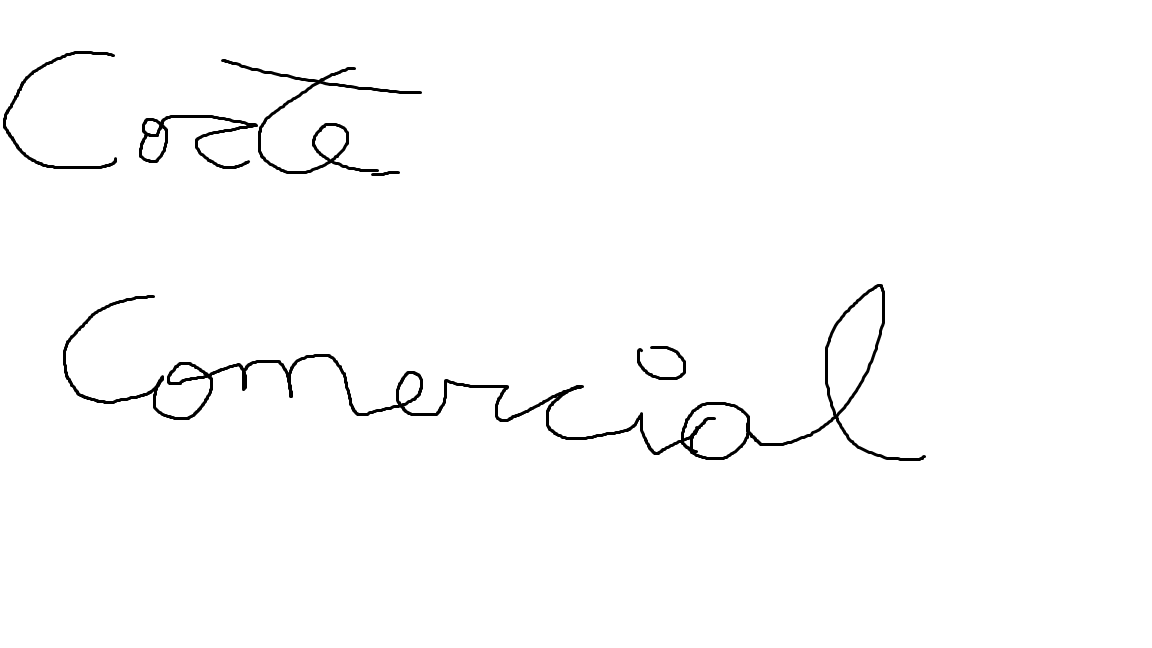 Corte
Comercial